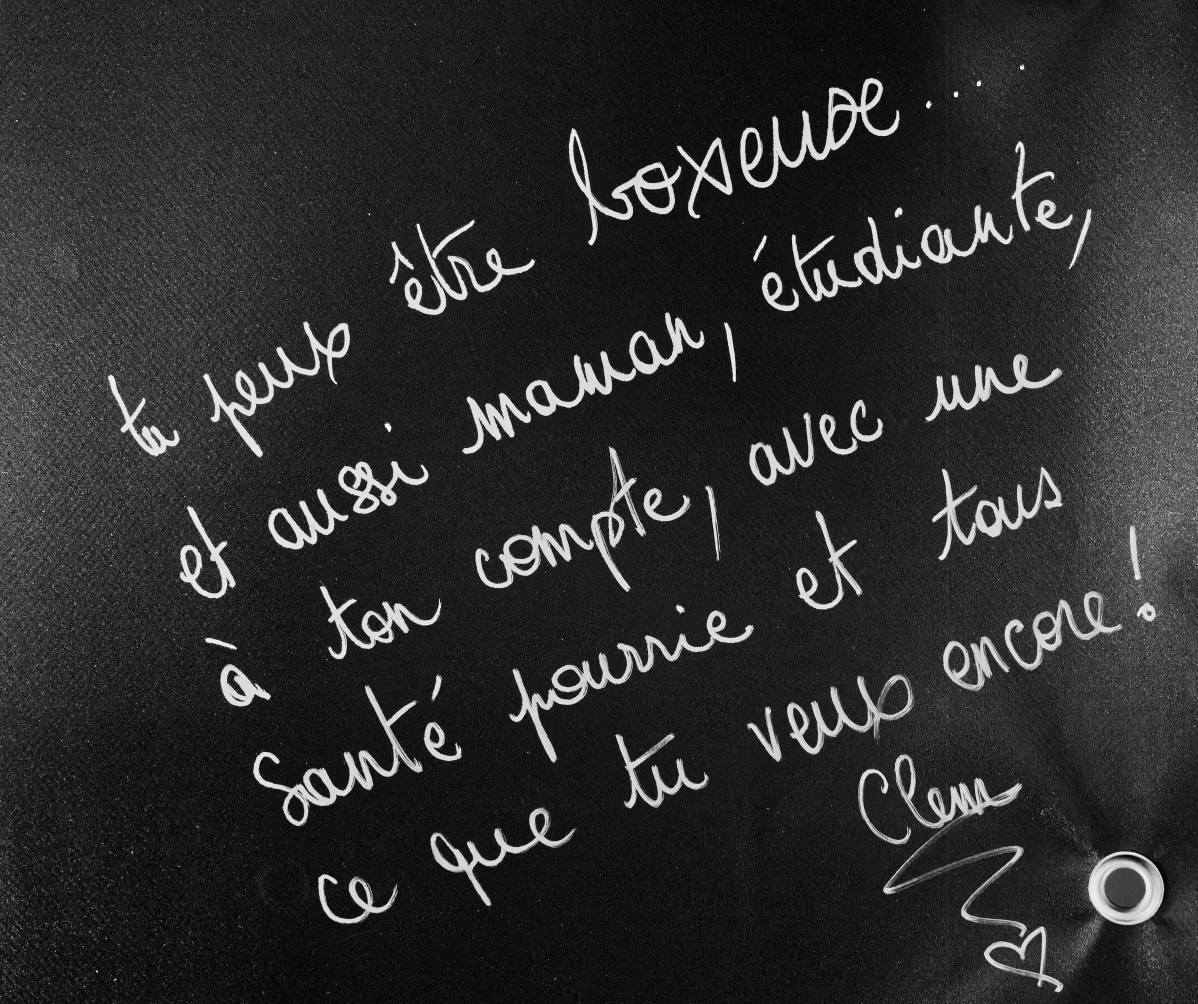 tu peux être boxeuse....
et aussi maman, étudiante,
à ton compte, avec une
santé pourrie et tous
ce que tu veux encore!
Clem